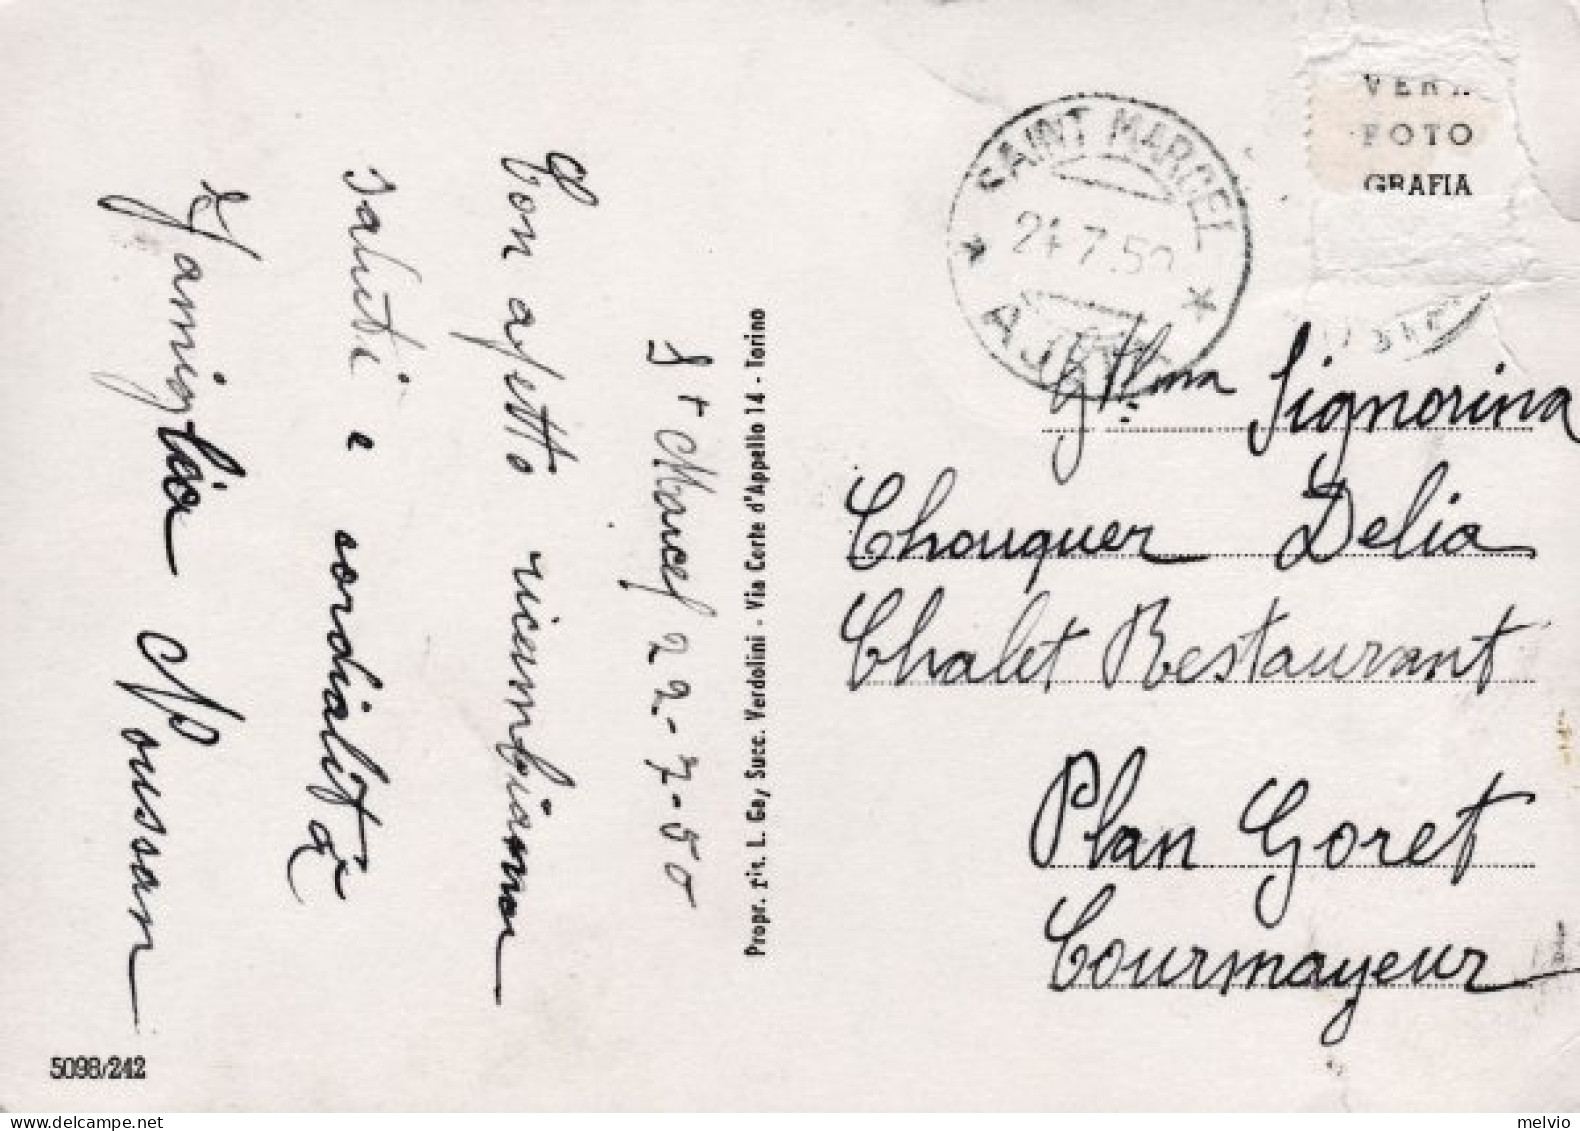 St Marcel 22-7-50
Con affetto ricambiamo
saluti e cordialità
Famiglia Noussan
Propr. ris. L. Gay Succ. Verdolini - Via Corte d'Appello 14 - Torino
5098/242
SAINT MARCEL
24.7.50
AOSTA
VERA
FOTO
GRAFIA
Gtil.ma Signorina
Chouquer Delia
Chalet Restaurant
Plan Goret
Courmayeur
melvio